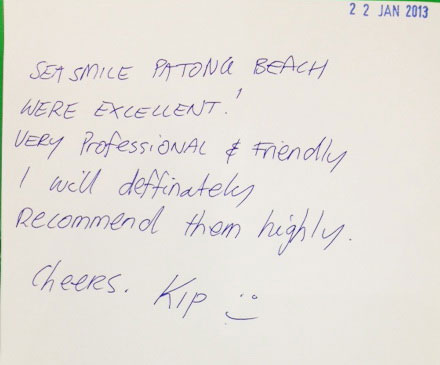 22 JAN 2013
SEA SMILE PATONG BEACH
WERE EXCELLENT!
VERY Professional & Friendly
I will deffinately
Recommend them highly.
Cheers. Kip :)